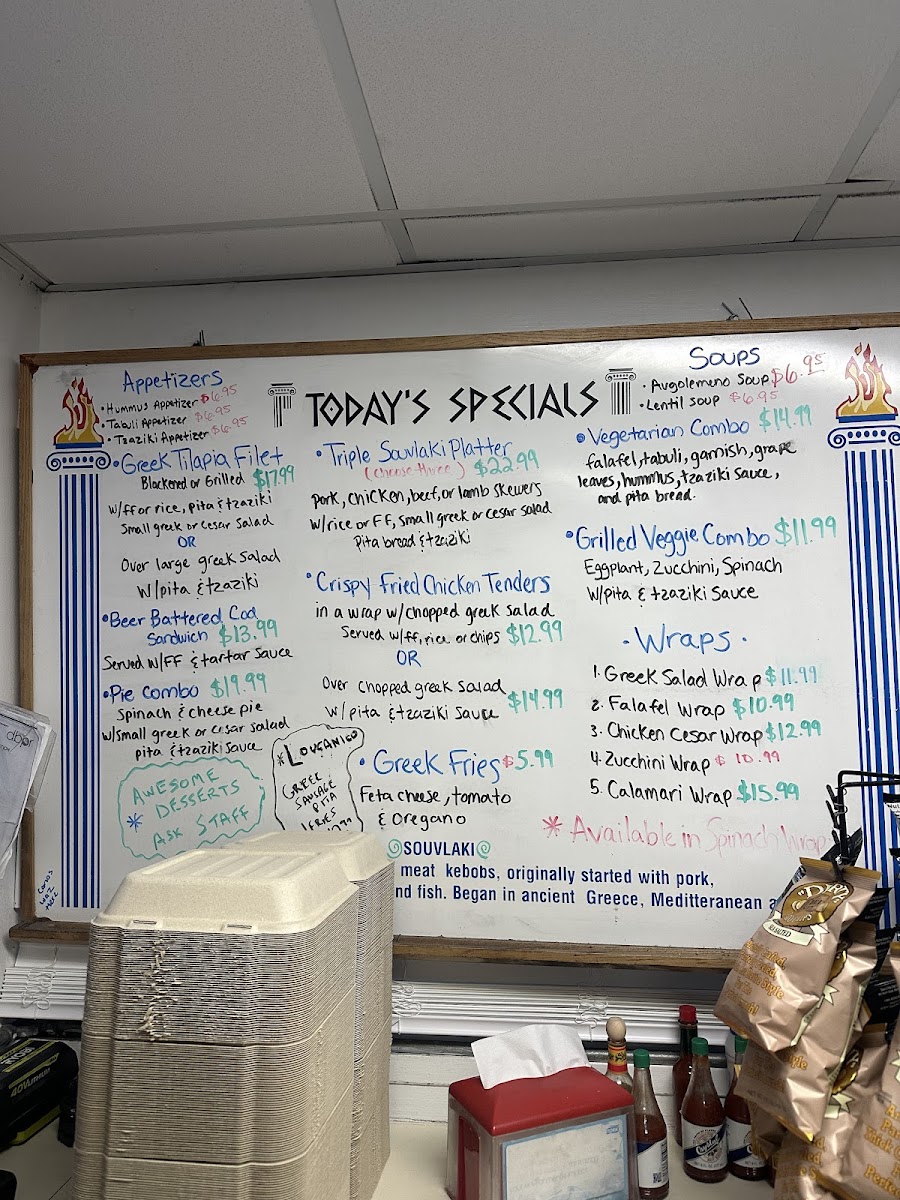 TODAY'S SPECIALS
Appetizers
• Hummus Appetizer $6.95
• Tabuli Appetizer $6.95
• Tzaziki Appetizer $6.95
• Greek Tilapia Filet
Blackened or Grilled $17.99
w/ff or rice, pita & tzaziki
Small greek or cesar salad
OR
Over large greek salad
w/pita & tzaziki
• Beer Battered Cod
Sandwich $13.99
Served w/FF & tartar sauce
• Pie Combo $19.99
Spinach & cheese pie
w/small greek or cesar salad
pita & tzaziki sauce
AWESOME
DESSERTS
* ASK STAFF
• Triple Souvlaki Platter
(choose three) $22.99
pork, chicken, beef, or lamb skewers
w/rice or FF, small greek or cesar salad
Pita bread & tzaziki
• Crispy Fried Chicken Tenders
in a wrap w/chopped greek salad
Served w/ff, rice or chips $12.99
OR
Over chopped greek salad
w/pita & tzaziki sauce $14.99
* LOUGANIGO
GREEK
SAUSAGE
PITA
FRIES
• Greek Fries $5.99
Feta cheese, tomato
& oregano
SOUVLAKI
meat kebobs, originally started with pork,
nd fish. Began in ancient Greece, Meditteranean a
Soups
• Avgolemono Soup $6.95
• Lentil soup $6.95
• Vegetarian Combo $14.99
falafel, tabuli, garnish, grape
leaves, hummus, tzaziki sauce,
and pita bread.
• Grilled Veggie Combo $11.99
Eggplant, Zucchini, Spinach
w/Pita & tzaziki sauce
• Wraps •
1. Greek Salad Wrap $11.99
2. Falafel Wrap $10.99
3. Chicken Cesar Wrap $12.99
4. Zucchini Wrap $10.99
5. Calamari Wrap $15.99
* Available in Spinach Wrap
RYOBI
40V
"DIRTY"